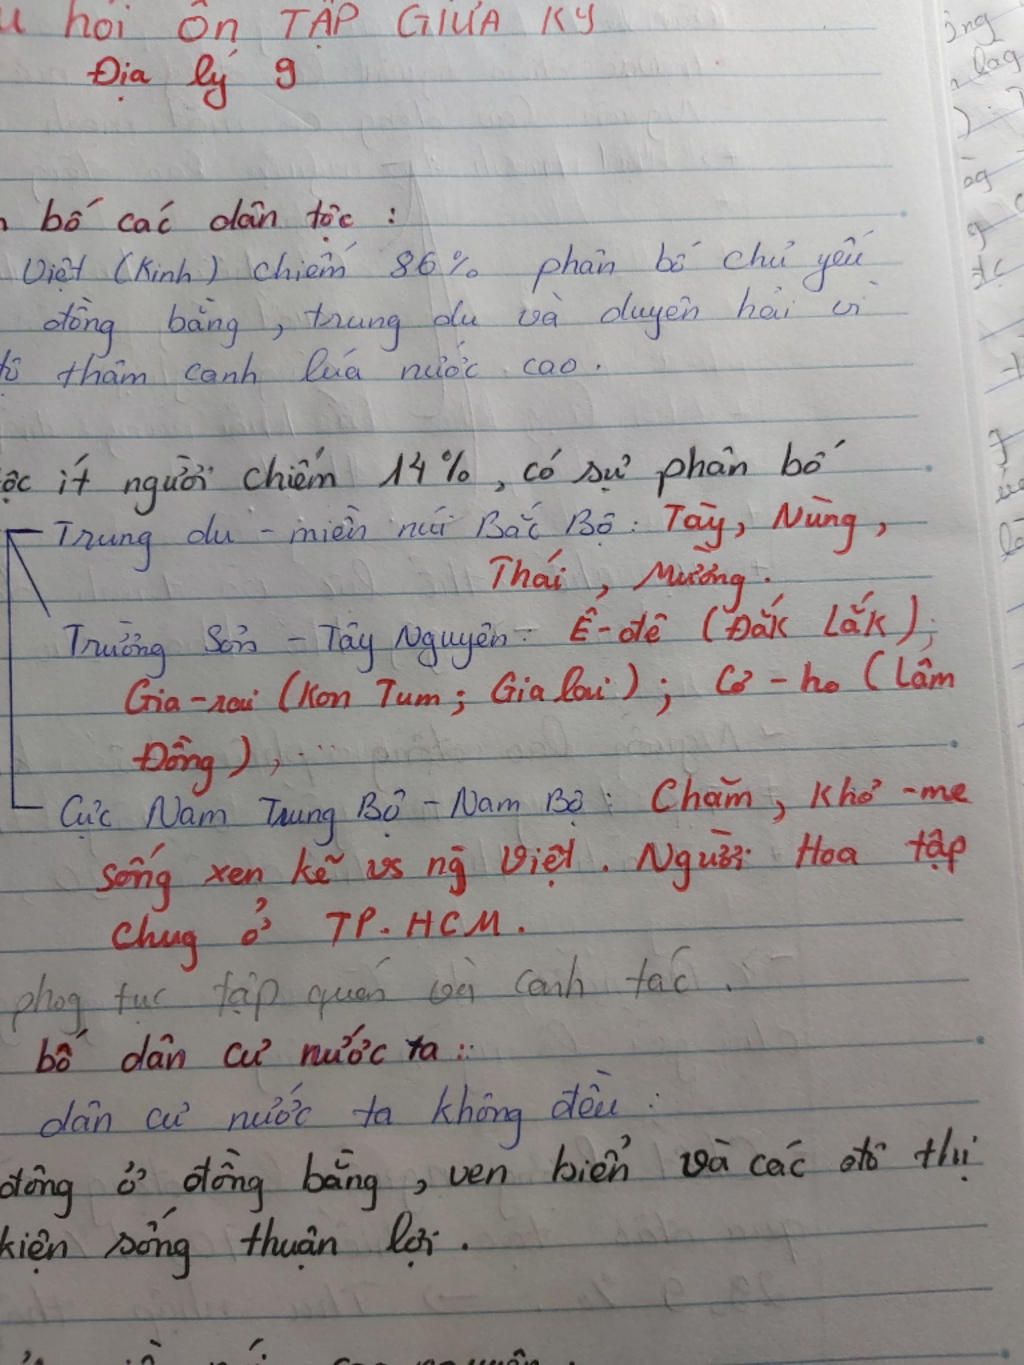 hỏi ÔN TẬP GIỮA KỲ
Địa lý 9
bố các dân tộc :
Việt (Kinh) chiếm 86% phân bố chủ yếu
đồng bằng, trung du và duyên hải vì
thâm canh lúa nước cao.
ít người chiếm 14%, có sự phân bố
Trung du - miền núi Bắc Bộ: Tày, Nùng,
Thái, Mường.
Trường Sơn - Tây Nguyên: Ê-đê (Đắk Lắk);
Gia-rai (Kon Tum; Gia lai); Cơ-ho (Lâm
Đồng),...
Cực Nam Trung Bộ - Nam Bộ: Chăm, Khơ-me
sống xen kẽ vs ng Việt. Người Hoa tập
chug ở TP.HCM.
phog tục tập quán và canh tác.
bố dân cư nước ta:
dân cư nước ta không đều:
đông ở đồng bằng, ven biển và các đô thị
kiện sống thuận lợi.